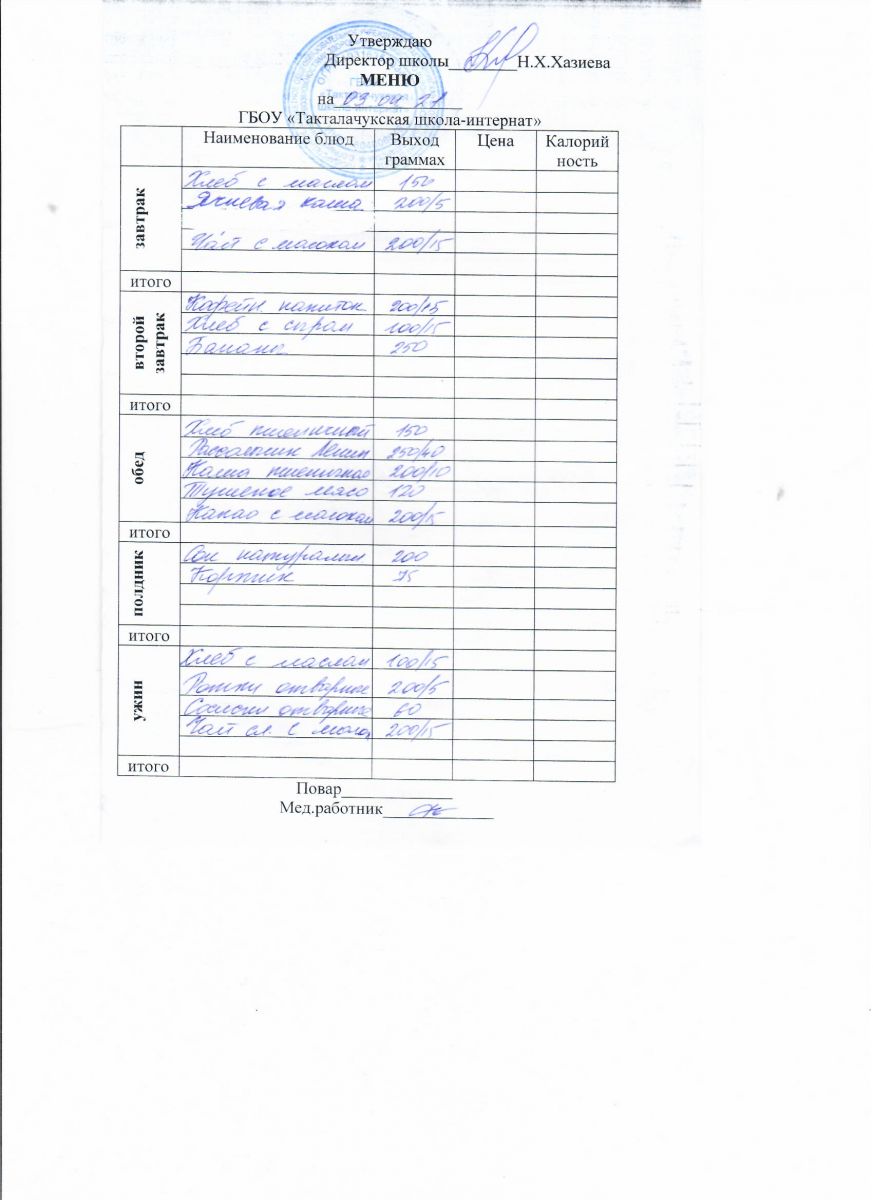 Утверждаю
Директор школы________Н.Х.Хазиева
МЕНЮ
на 03 04 21
ГБОУ «Такталачукская школа-интернат»
Наименование блюд Выход граммах Цена Калорий ность
завтрак
Хлеб с маслом 150
Ячневая каша 200/5
Чай с молоком 200/15
итого
второй завтрак
Кофейн напиток 200/15
Хлеб с сыром 100/15
Банана 250
итого
обед
Хлеб пшеничный 150
Рассольник Ленин 250/40
Каша пшеничная 200/10
Тушеное мясо 120
Какао с молоком 200/15
итого
полдник
Сок натуральн 200
Коржик 75
итого
ужин
Хлеб с маслом 100/15
Рожки отварные 200/5
Сосиски отварные 60
Чай сл. с молок 200/15
итого
Повар_____________
Мед.работник_____________